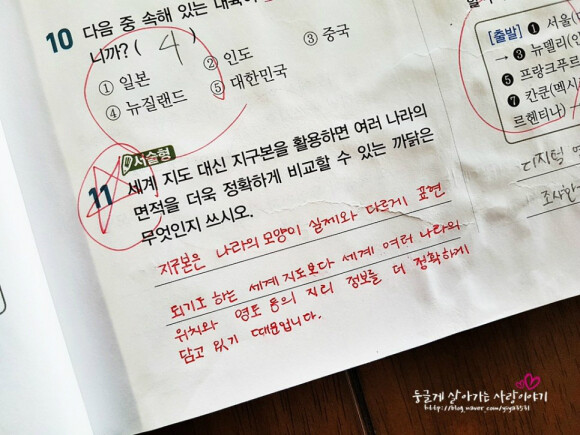 10 다음 중 속해 있는 대륙이
니까? ( 4 )
① 일본
② 인도
③ 중국
④ 뉴질랜드
⑤ 대한민국
서술형
11 세계 지도 대신 지구본을 활용하면 여러 나라의
면적을 더욱 정확하게 비교할 수 있는 까닭은
무엇인지 쓰시오.
지구본은 나라의 모양이 실제와 다르게 표현
되기도 하는 세계지도보다 세계 여러 나라의
위치와 영토 등의 지리 정보를 더 정확하게
담고 있기 때문입니다.
[출발] ❶ 서울(
→ ❸ 뉴델리(인
❺ 프랑크푸르
❼ 칸쿤(멕시
르헨티나)
디지털
조사한
둥글게 살아가는 사랑이야기